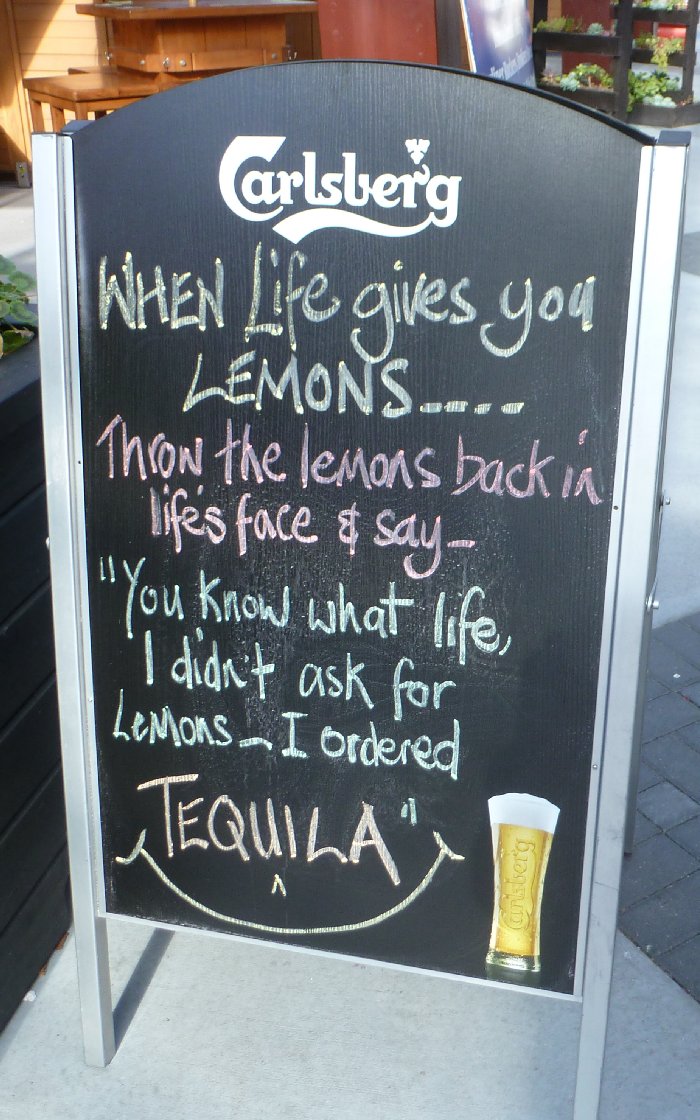 Carlsberg
WHEN Life gives you
LEMONS----
Throw the lemons back in
life's face & say_
"You know what life,
I didn't ask for
Lemons_ I ordered
TEQUILA"
Carlsberg